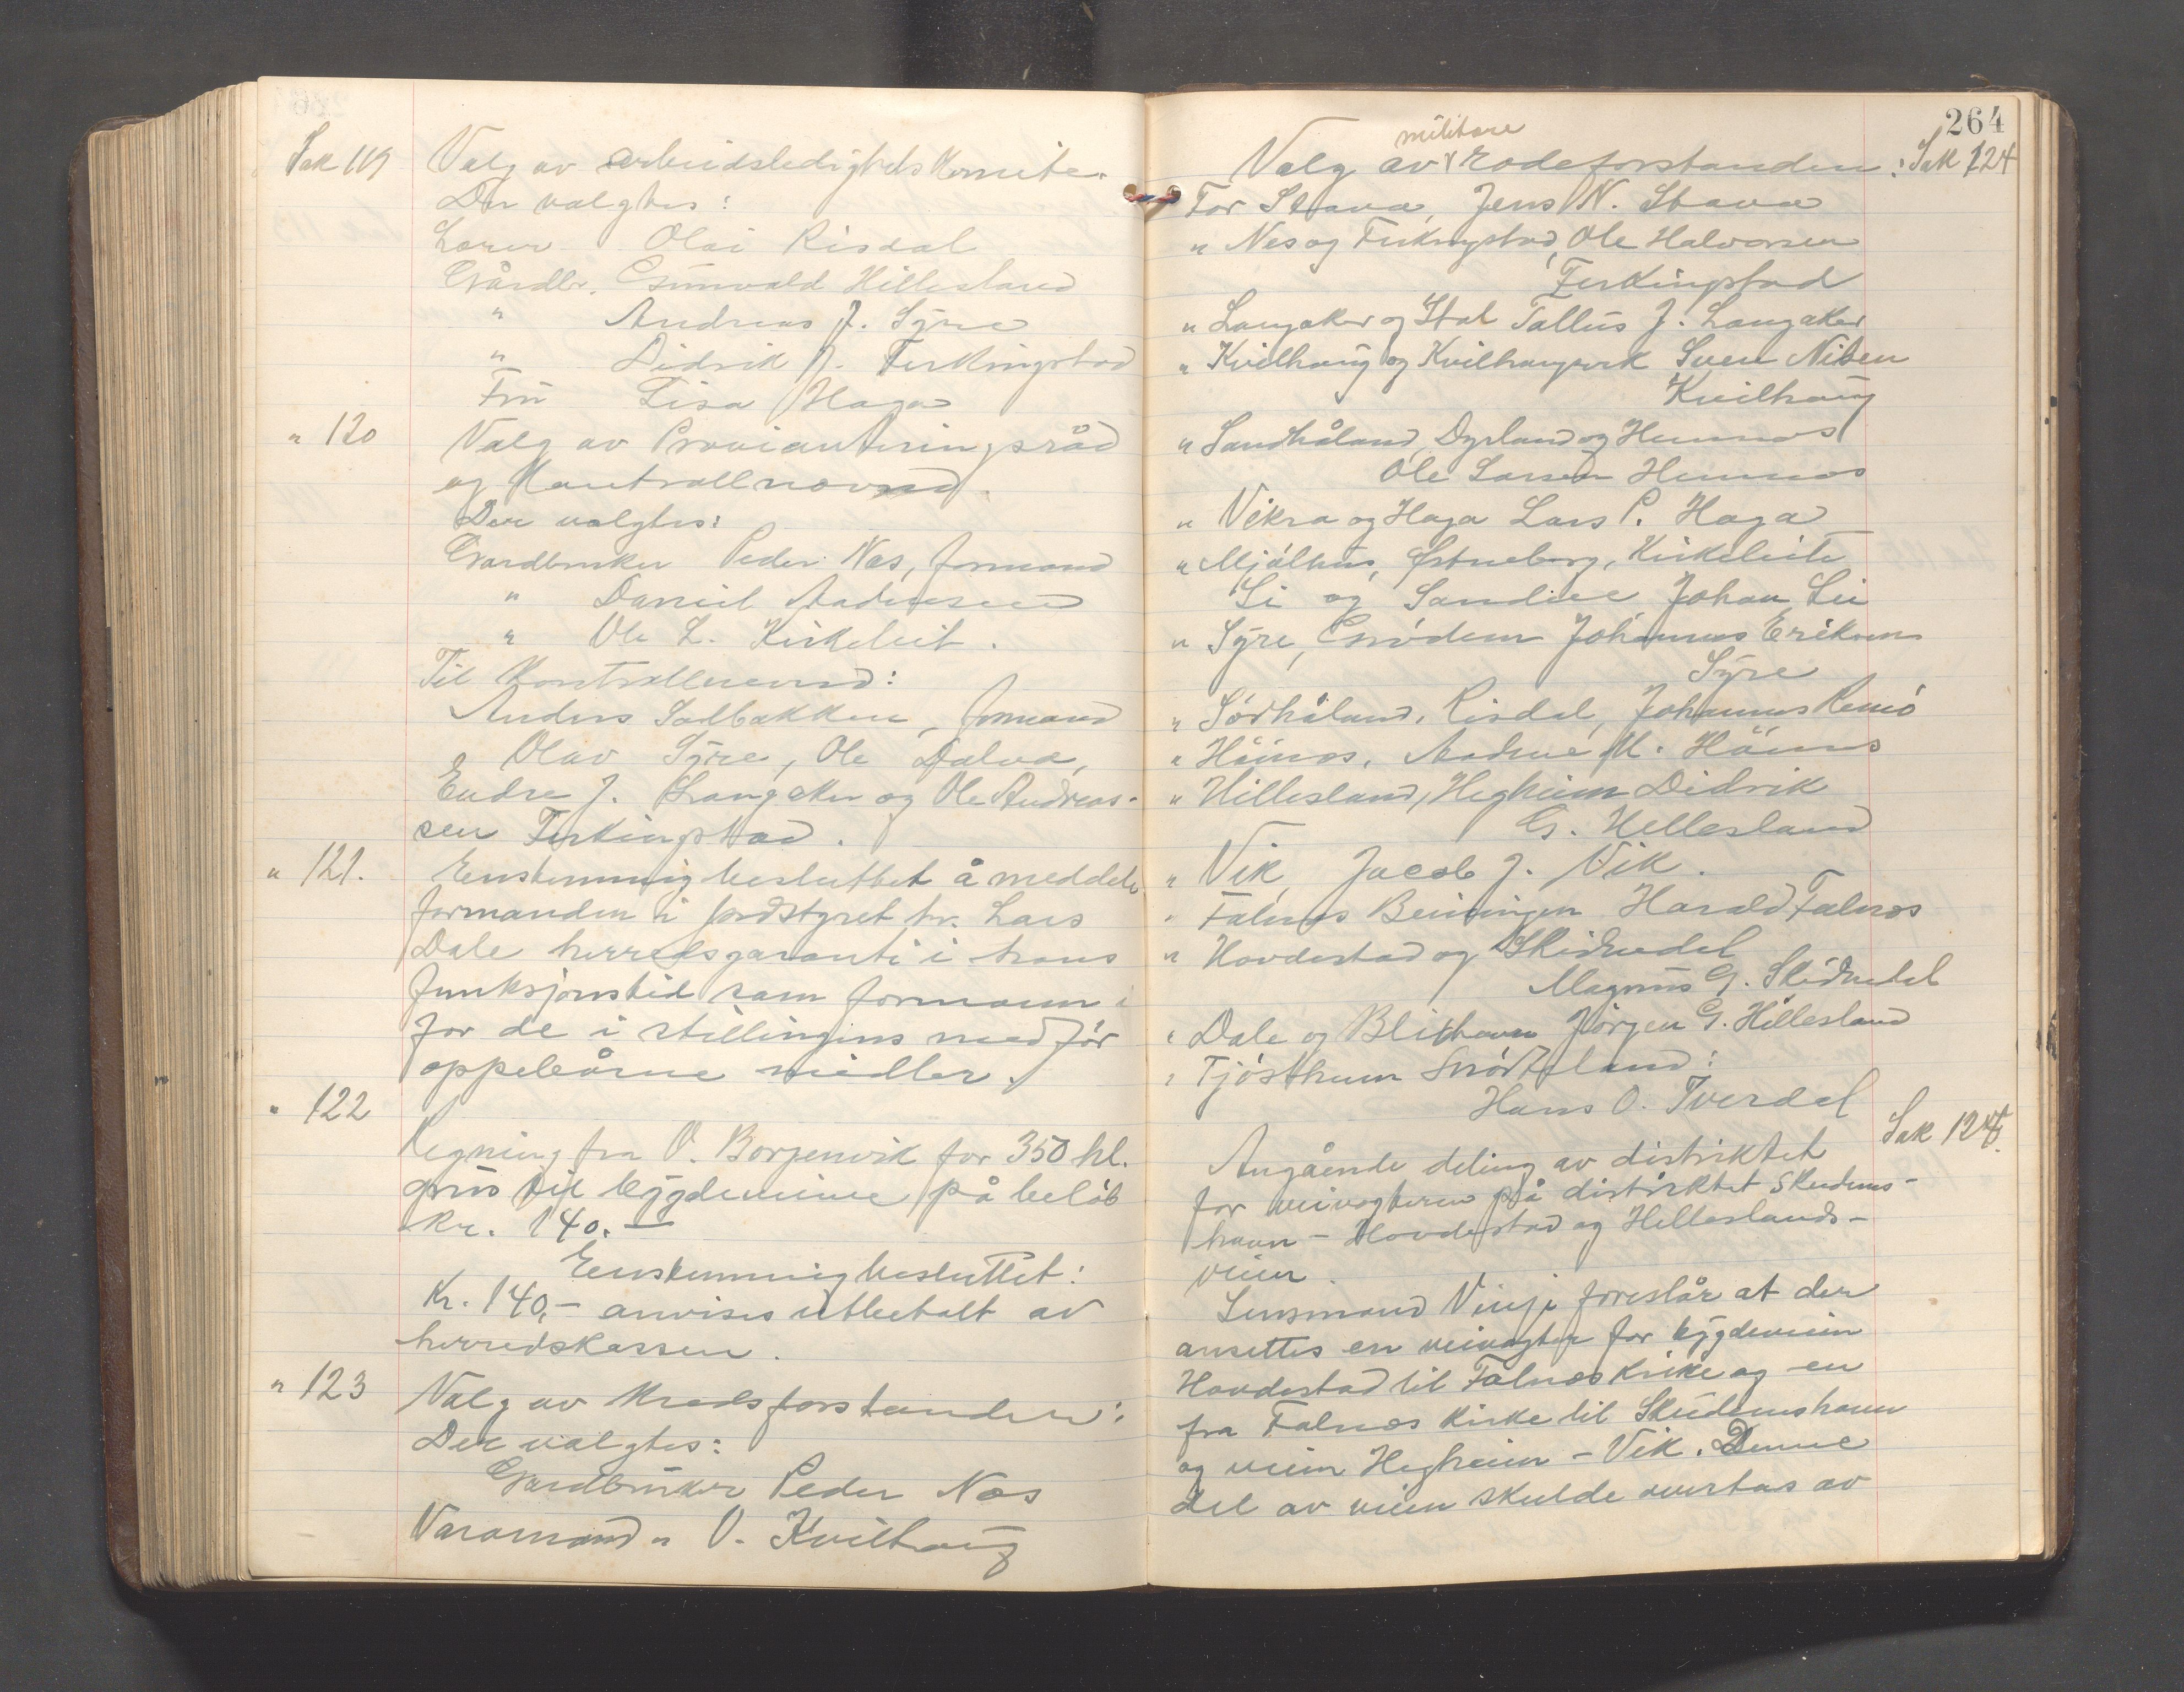 Sak 119 Valg av arbeidsledighetskomite.
Der valgtes:
Lærer Olai Risdal
Gårdbr. Gunvald Hillesland
" Andreas J. Syre
" Didrik J. Ferkingstad
Fru Lisa Haga
" 120 Valg av Provianteringsråd
og Kontrollnævnd.
Der valgtes:
Gardbruker Peder Næs, formand
" Daniel Andreasen
" Ole L. Kirkeleit.
Til Kontrollnevnd:
Anders Solbakken, formand
Olav Syre, Ole Dalva,
Endre J. Langåker og Ole Andreas-
sen Ferkingstad.
" 121. Enstemmig besluttet å meddele
formanden i jordstyret hr. Lars
Dale herredsgaranti i hans
funksjonstid som formann i
for de i stillingens medfør
oppebårne midler.
" 122
Regning fra O. Borgenvik for 350 hl.
grus til bygdeveiene på beløb
Kr. 140.—
Enstemmig besluttet:
Kr. 140,- anvises utbetalt av
herredskassen.
" 123 Valg av Kredsforstander:
Der valgtes:
Gardbruker Peder Næs
Varamand " O. Kvilhaug
264
militære
Valg av rodeforstander: Sak 124
For Stava, Jens N. Stava
" Nes og Ferkingstad, Ole Halvorsen
Ferkingstad
" Langåker og Stol Tallus J. Langaker
" Kvilhaug og Kvilhaugvik Sven Nilsen
Kvilhaug
" Sandhåland, Dyrland og Hemnes
Ole Larsen Hemnes
" Vikra og Haga Lars P. Haga
" Mjølhus, Østneberg, Kirkeleite
Li og Sandve Johan Lie
" Syre, Grødem Johannes Eriksen
Syre
" Sørhåland, Risdal, Johannes Remö
" Håines, Andreas M. Håines
" Hillesland, Hegheim Didrik
G. Hellesland
" Vik, Jacob J. Vik.
" Falnes Beiningen Harald Falnes
" Hovdestad og Skidnedel
Magnus G. Skidnedel
" Dale og Blikhavn Jörgen G. Hillesland
" Tjøstheim Snørteland:
Hans O. Tverdal
Sak 124
Angående deling av distriktet
for veivogteren på distriktet Skudenes-
havn - Hovdestad og Hellelands-
veien.
Lensmand Vinje foreslår at der
ansettes en veivogter for bygdeveien
Hovdestad til Falnes Kirke og en
fra Falnes kirke til Skudeneshavn
og veien Hegheim - Vik. Denne
del av veien skulde overtas av